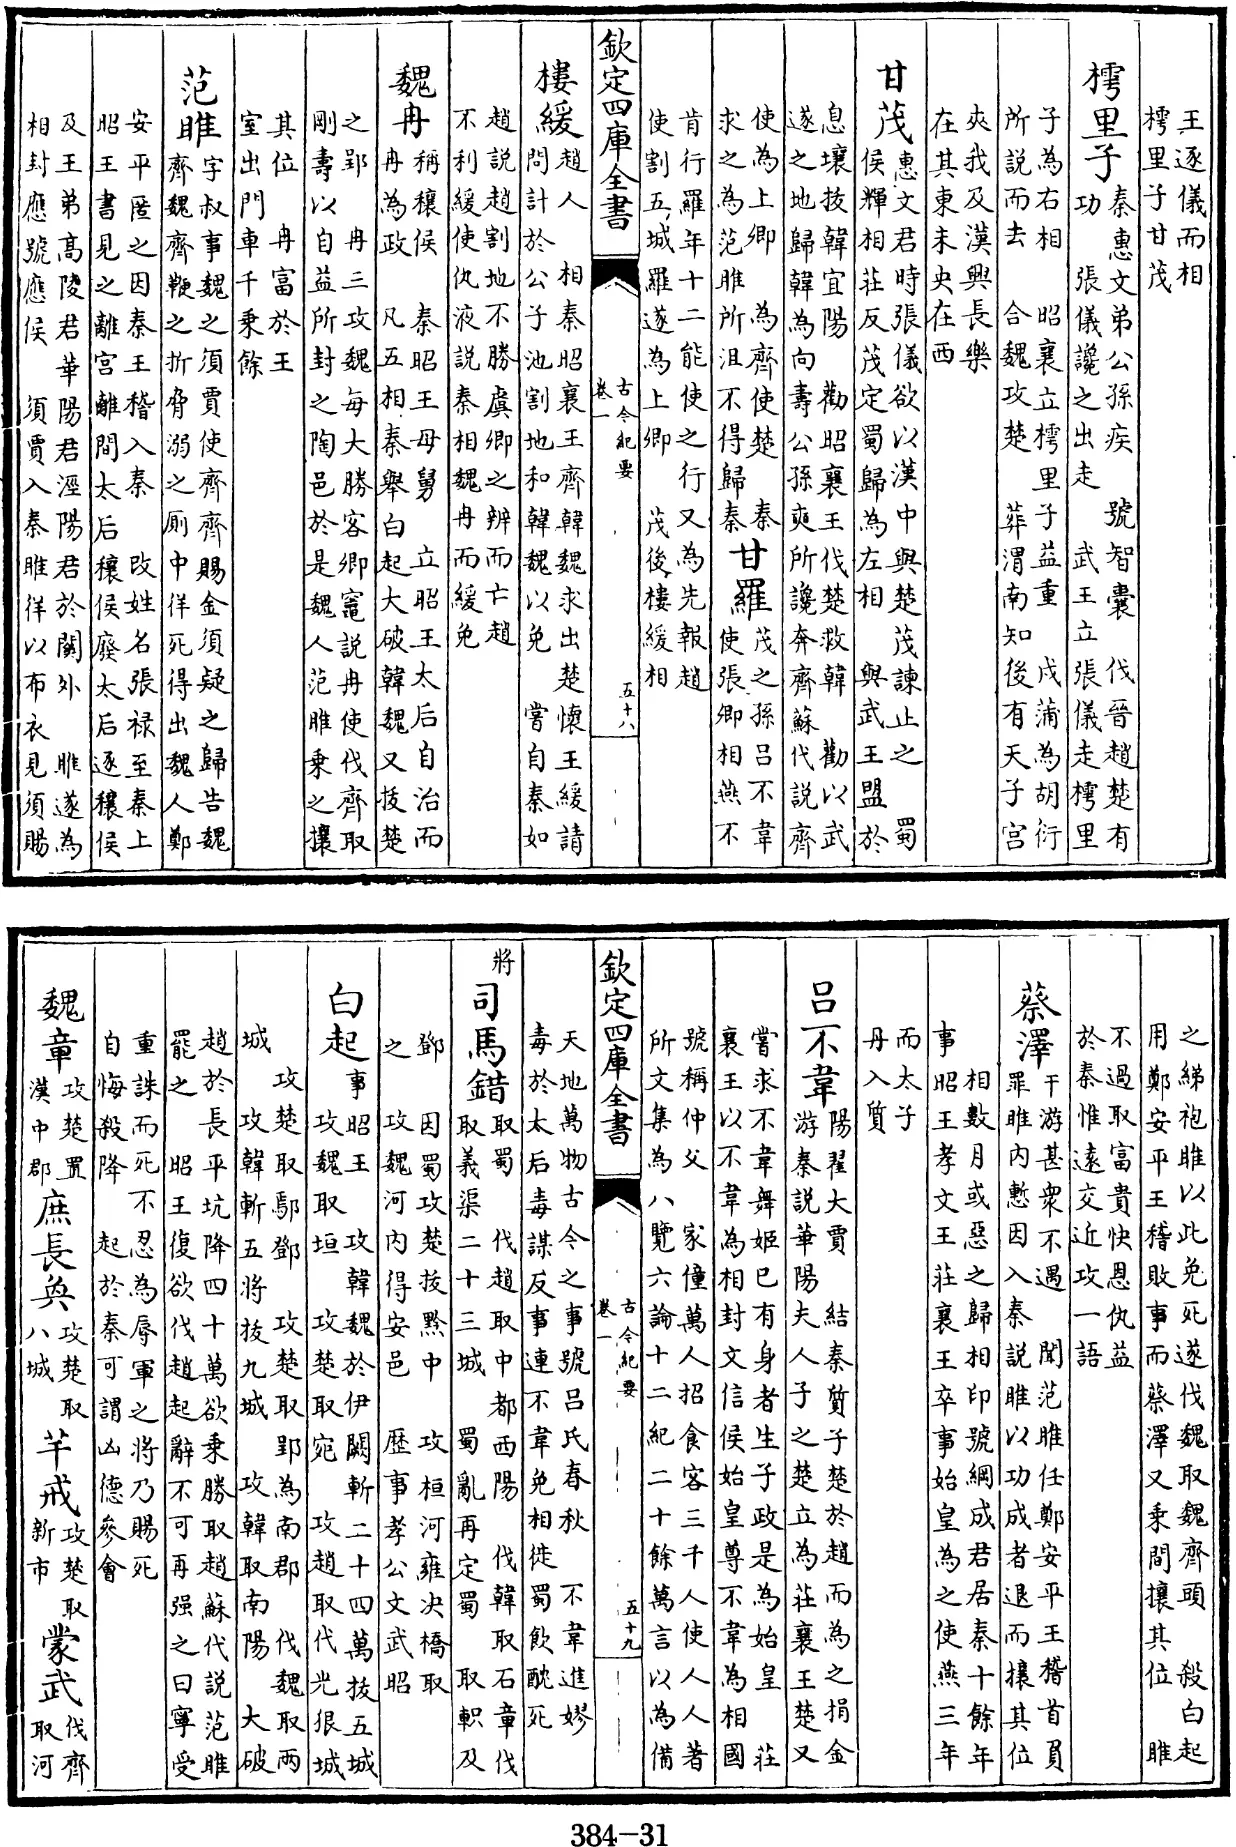 王逐儀而相
樗里子甘茂
樗里子 秦惠文弟公孫疾 號智囊 伐晉趙楚有
功 張儀讒之出走 武王立張儀走樗里
子為右相 昭襄立樗里子益重 戍蒲為胡衍
所說而去 合魏攻楚 葬渭南知後有天子宮
夾我及漢興長樂
在其東未央在西
甘茂 惠文君時張儀欲以漢中與楚茂諫止之 蜀
侯輝相莊反茂定蜀歸為左相 與武王盟於
息壤拔韓宜陽 勸昭襄王伐楚救韓 勸以武
遂之地歸韓為向壽公孫奭所讒奔齊蘇代說齊
使為上卿 為齊使楚 秦
求之為范雎所沮不得歸秦
甘羅 茂之孫呂不韋
使張卿相燕不
肯行羅年十二能使之行又為先報趙
使割五城羅遂為上卿 茂後樓緩相
欽定四庫全書
古今紀要
卷一
五十八
樓緩 趙人 相秦昭襄王齊韓魏求出楚懷王緩請
問計於公子池割地和韓魏以免 嘗自秦如
趙說趙割地不勝虞卿之辨而亡趙
不利緩使仇液說秦相魏冉而緩免
魏冉 稱穰侯 秦昭王母舅 立昭王太后自治而
冉為政 凡五相秦舉白起大破韓魏又拔楚
之郢 冉三攻魏每大勝客卿竈說冉使伐齊取
剛壽以自益所封之陶邑於是魏人范雎乗之攘
其位 冉富於王
室出門車千乗餘
范雎 字叔事魏之須賈使齊齊賜金須疑之歸告魏
齊魏齊鞭之折脅溺之厠中佯死得出魏人鄭
安平匿之因秦王稽入秦 改姓名張禄至秦上
昭王書見之離宮離間太后穰侯廢太后逐穰侯
及王弟高陵君華陽君涇陽君於關外 雎遂為
相封應號應侯 須賈入秦雎佯以布衣見須賜
之綈袍雎以此免死遂伐魏取魏齊頭 殺白起
用鄭安平王稽敗事而蔡澤又乗間攘其位 雎
不過取富貴快恩仇益
於秦惟遠交近攻一語
蔡澤 干游甚衆不遇 聞范雎任鄭安平王稽首負
罪雎内慙因入秦說雎以功成者退而攘其位
相數月或惡之歸相印號綱成君居秦十餘年
事昭王孝文王莊襄王卒事始皇為之使燕三年
而太子
丹入質
呂不韋 陽翟大賈 結秦質子楚於趙而為之捐金
游秦說華陽夫人子之楚立為莊襄王楚又
嘗求不韋舞姬已有身者生子政是為始皇 莊
襄王以不韋為相封文信侯始皇尊不韋為相國
號稱仲父 家僮萬人招食客三千人使人人著
所文集為八覽六論十二紀二十餘萬言以為備
欽定四庫全書
古今紀要
卷一
五十九
天地萬物古今之事號呂氏春秋 不韋進嫪
毒於太后毒謀反事連不韋免相徙蜀飲酖死
將
司馬錯 取蜀 伐趙取中都西陽 伐韓取石章伐
取義渠二十三城 蜀亂再定蜀 取軹及
鄧 因蜀攻楚拔黔中 攻桓河雍决橋取
之 攻魏河内得安邑 歴事孝公文武昭
白起 事昭王 攻韓魏於伊闕斬二十四萬拔五城
攻魏取垣 攻楚取宛 攻趙取代光狼城
攻楚取鄢鄧 攻楚取郢為南郡 伐魏取兩
城 攻韓斬五將拔九城 攻韓取南陽 大破
趙於長平坑降四十萬欲乗勝取趙蘇代說范雎
罷之 昭王復欲伐趙起辭不可再强之曰寧受
重誅而死不忍為辱軍之將乃賜死
自悔殺降 起於秦可謂凶德參會
魏章 攻楚置
漢中郡
庶長奐 攻楚取
八城
芊戒 攻楚取
新市
蒙武 伐齊
取河
384-31